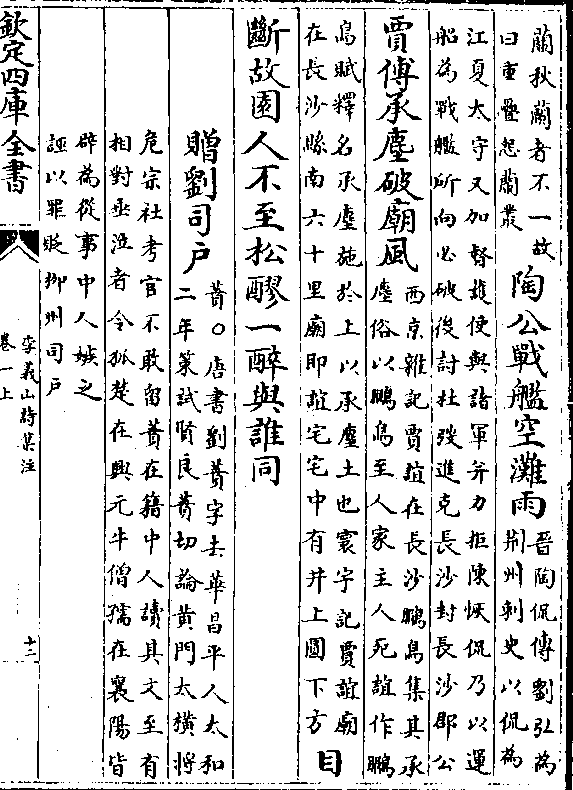 蘭秋蘭者不一故
曰重疊怨蘭叢
陶公戰艦空灘雨
晉陶侃傳劉弘為
荆州刺史以侃為
江夏太守又加督護使與諸軍并力拒陳恢侃乃以運
船為戰艦所向必破後討杜弢進克長沙封長沙郡公
賈傅承塵破廟風
西京雜記賈誼在長沙鵩鳥集其承
塵俗以鵩鳥至人家主人死誼作鵩
鳥賦釋名承塵施於上以承塵土也寰宇記賈誼廟
在長沙縣南六十里廟即誼宅宅中有井上圓下方
目
斷故園人不至松醪一醉與誰同
贈劉司戶
蕡○唐書劉蕡字去華昌平人太和
二年策試賢良蕡切論黄門太橫將
危宗社考官不敢留蕡在籍中人讀其文至有
相對垂泣者令狐楚在興元牛僧孺在襄陽皆
辟為從事中人嫉之
誣以罪貶柳州司戶
欽定四庫全書
李義山詩集注
卷一上
十三